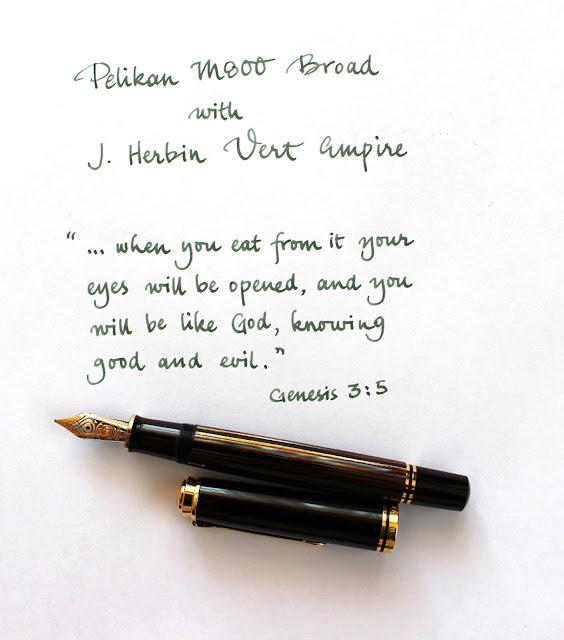 Pelikan M800 Broad
with
J. Herbin Vert Empire
“ ... when you eat from it your
eyes will be opened, and you
will be like God, knowing
good and evil.”
Genesis 3:5